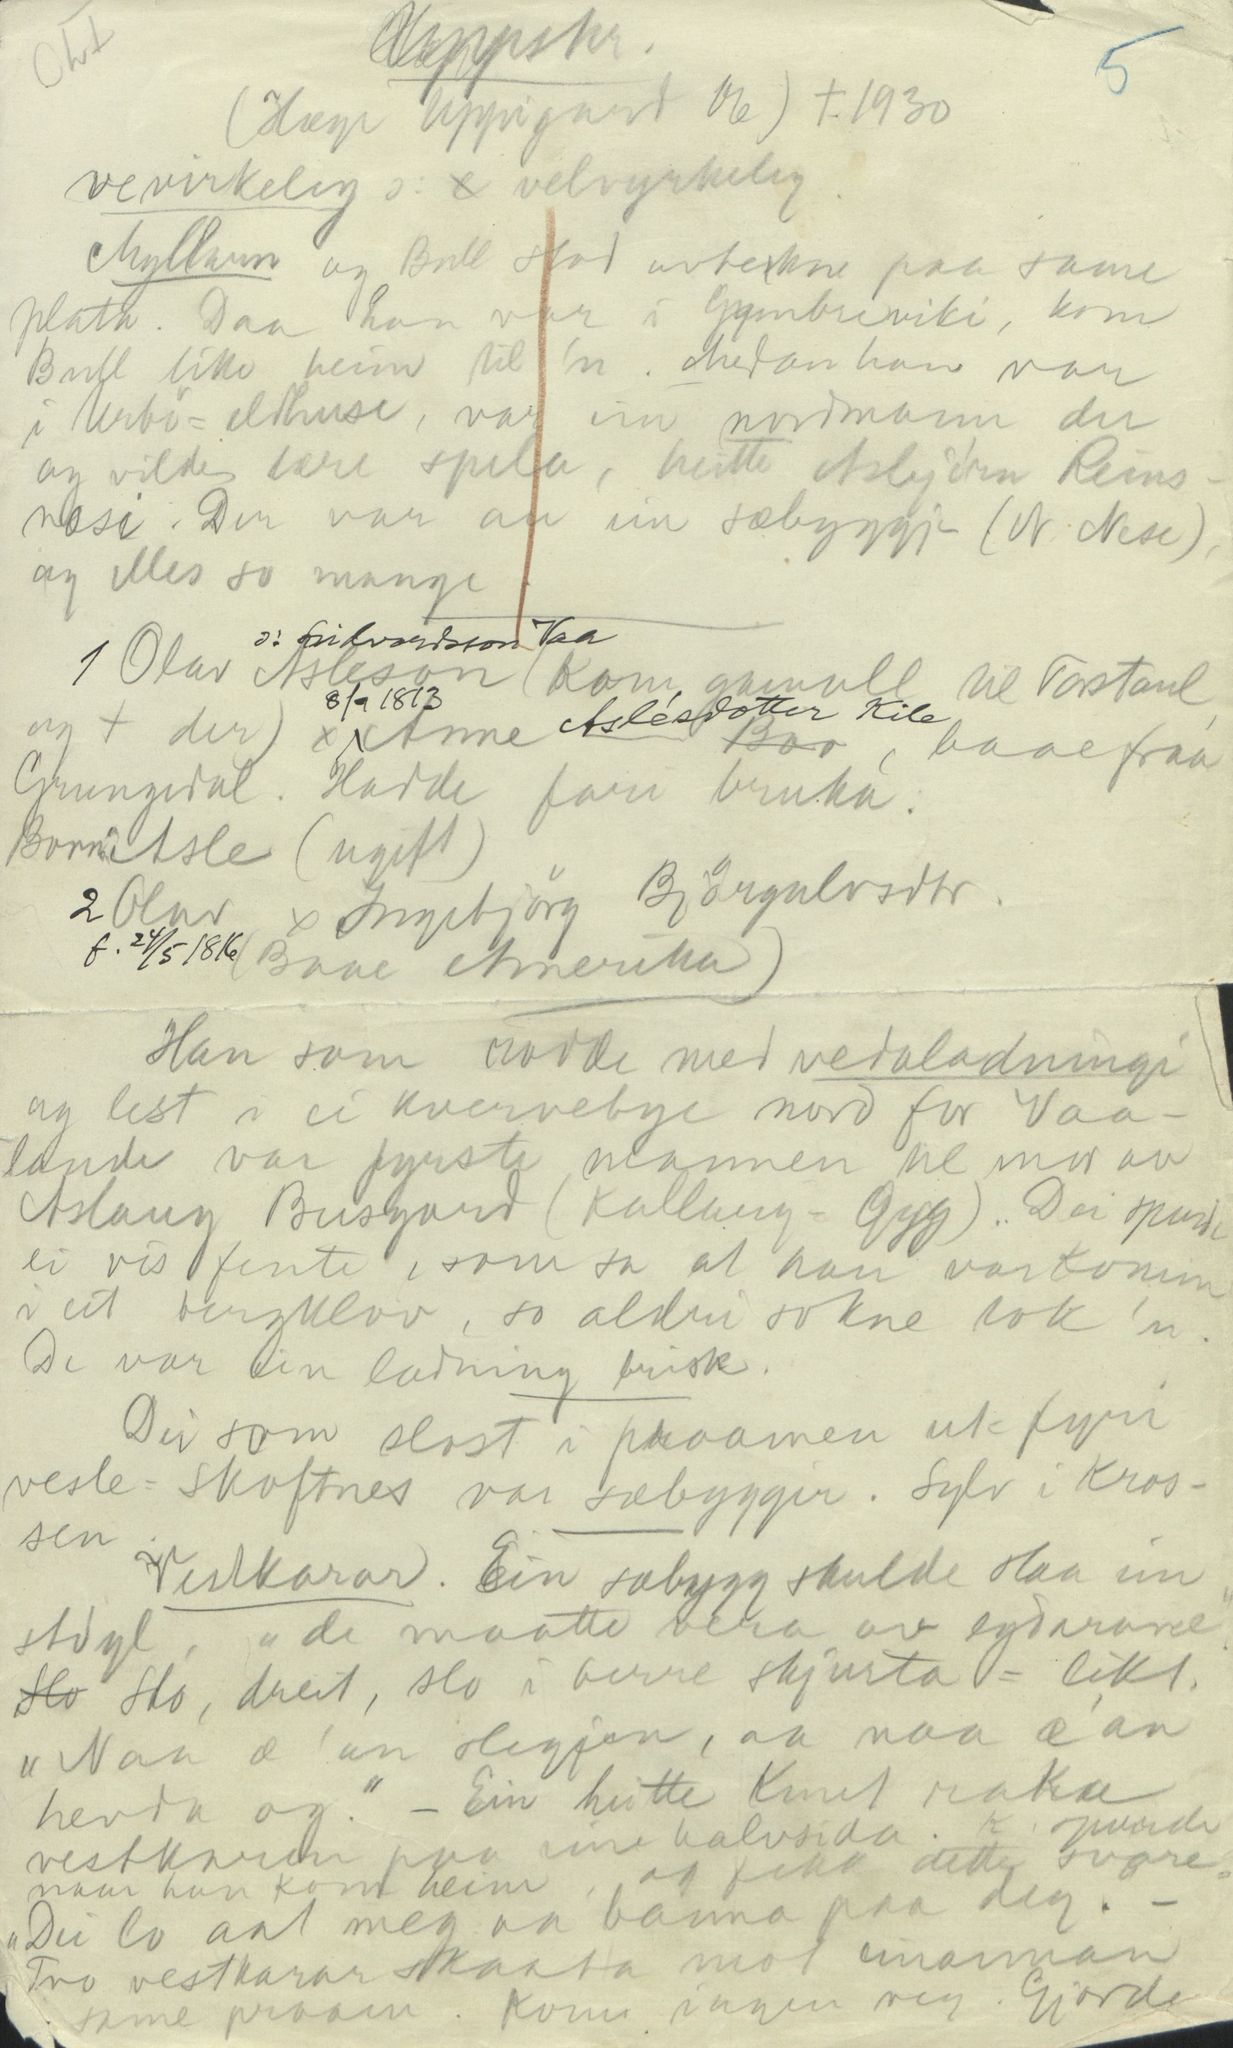 Uppskr.
5
(Hæge Uppigard Øe) † 1930
vevirkeleg ɔ: velvyrkeleg
Myllarn og Bull stod avtekne paa same
plata. Daa han var i Gymbreviki, kom
Bull like heim til 'n. Medan han var
i Urbö-eldhuse, var ein nordmann der
og vilde lære spela, heitte Asbjörn Reins-
nosi. Der var au ein sæbyggje (N. Nese),
og elles so mange.
ɔ: Sidvardsson Vaa
1 Olav Asleson (Kom gamall til Torstaul
8/9 1813 Aslésdotter Kile
og † der) x Anne Boo, baae fraa
Grungedal. Hadde fari bruka.
Born: Asle (ugift)
2 Olav x Ingebjörg Björgulvsdtr.
f. 24/5 1816 (Baae Amerika)
Han som rodde med vedaladningi
og lest i ei kvervebye nord for Vaa-
lande var fyrste mannen til mor av
Aslaug Busgard (Kallaug-Gyg). Dei spurde
ei vis fente, som sa at han var komen
i eit bergklov, so aldri sokne tok 'n.
De var ein ladning brisk.
Dei som slost i praamen ut-fyri
vesle-Skoftnes var sæbyggir. Sylv i Kros-
sen.
Vestkarar. Ein sæbygg skulde slaa ein
stòyl, "de maatte vera av
Slo Slo, dreit, slo i berre skjurta - likt.
"Naa æ 'an slegjen, aa naa æ 'an
herda og." - Ein heitte Knut raka
vestkaren paa eine halvsida. K. spurde
naar han kom heim, og fekk dette svare:
"Dei lo aat meg aa banna paa deg. -
Tvo vestkarar skaata mot einannan
i same praam. Kom ingen veg. Gjorde